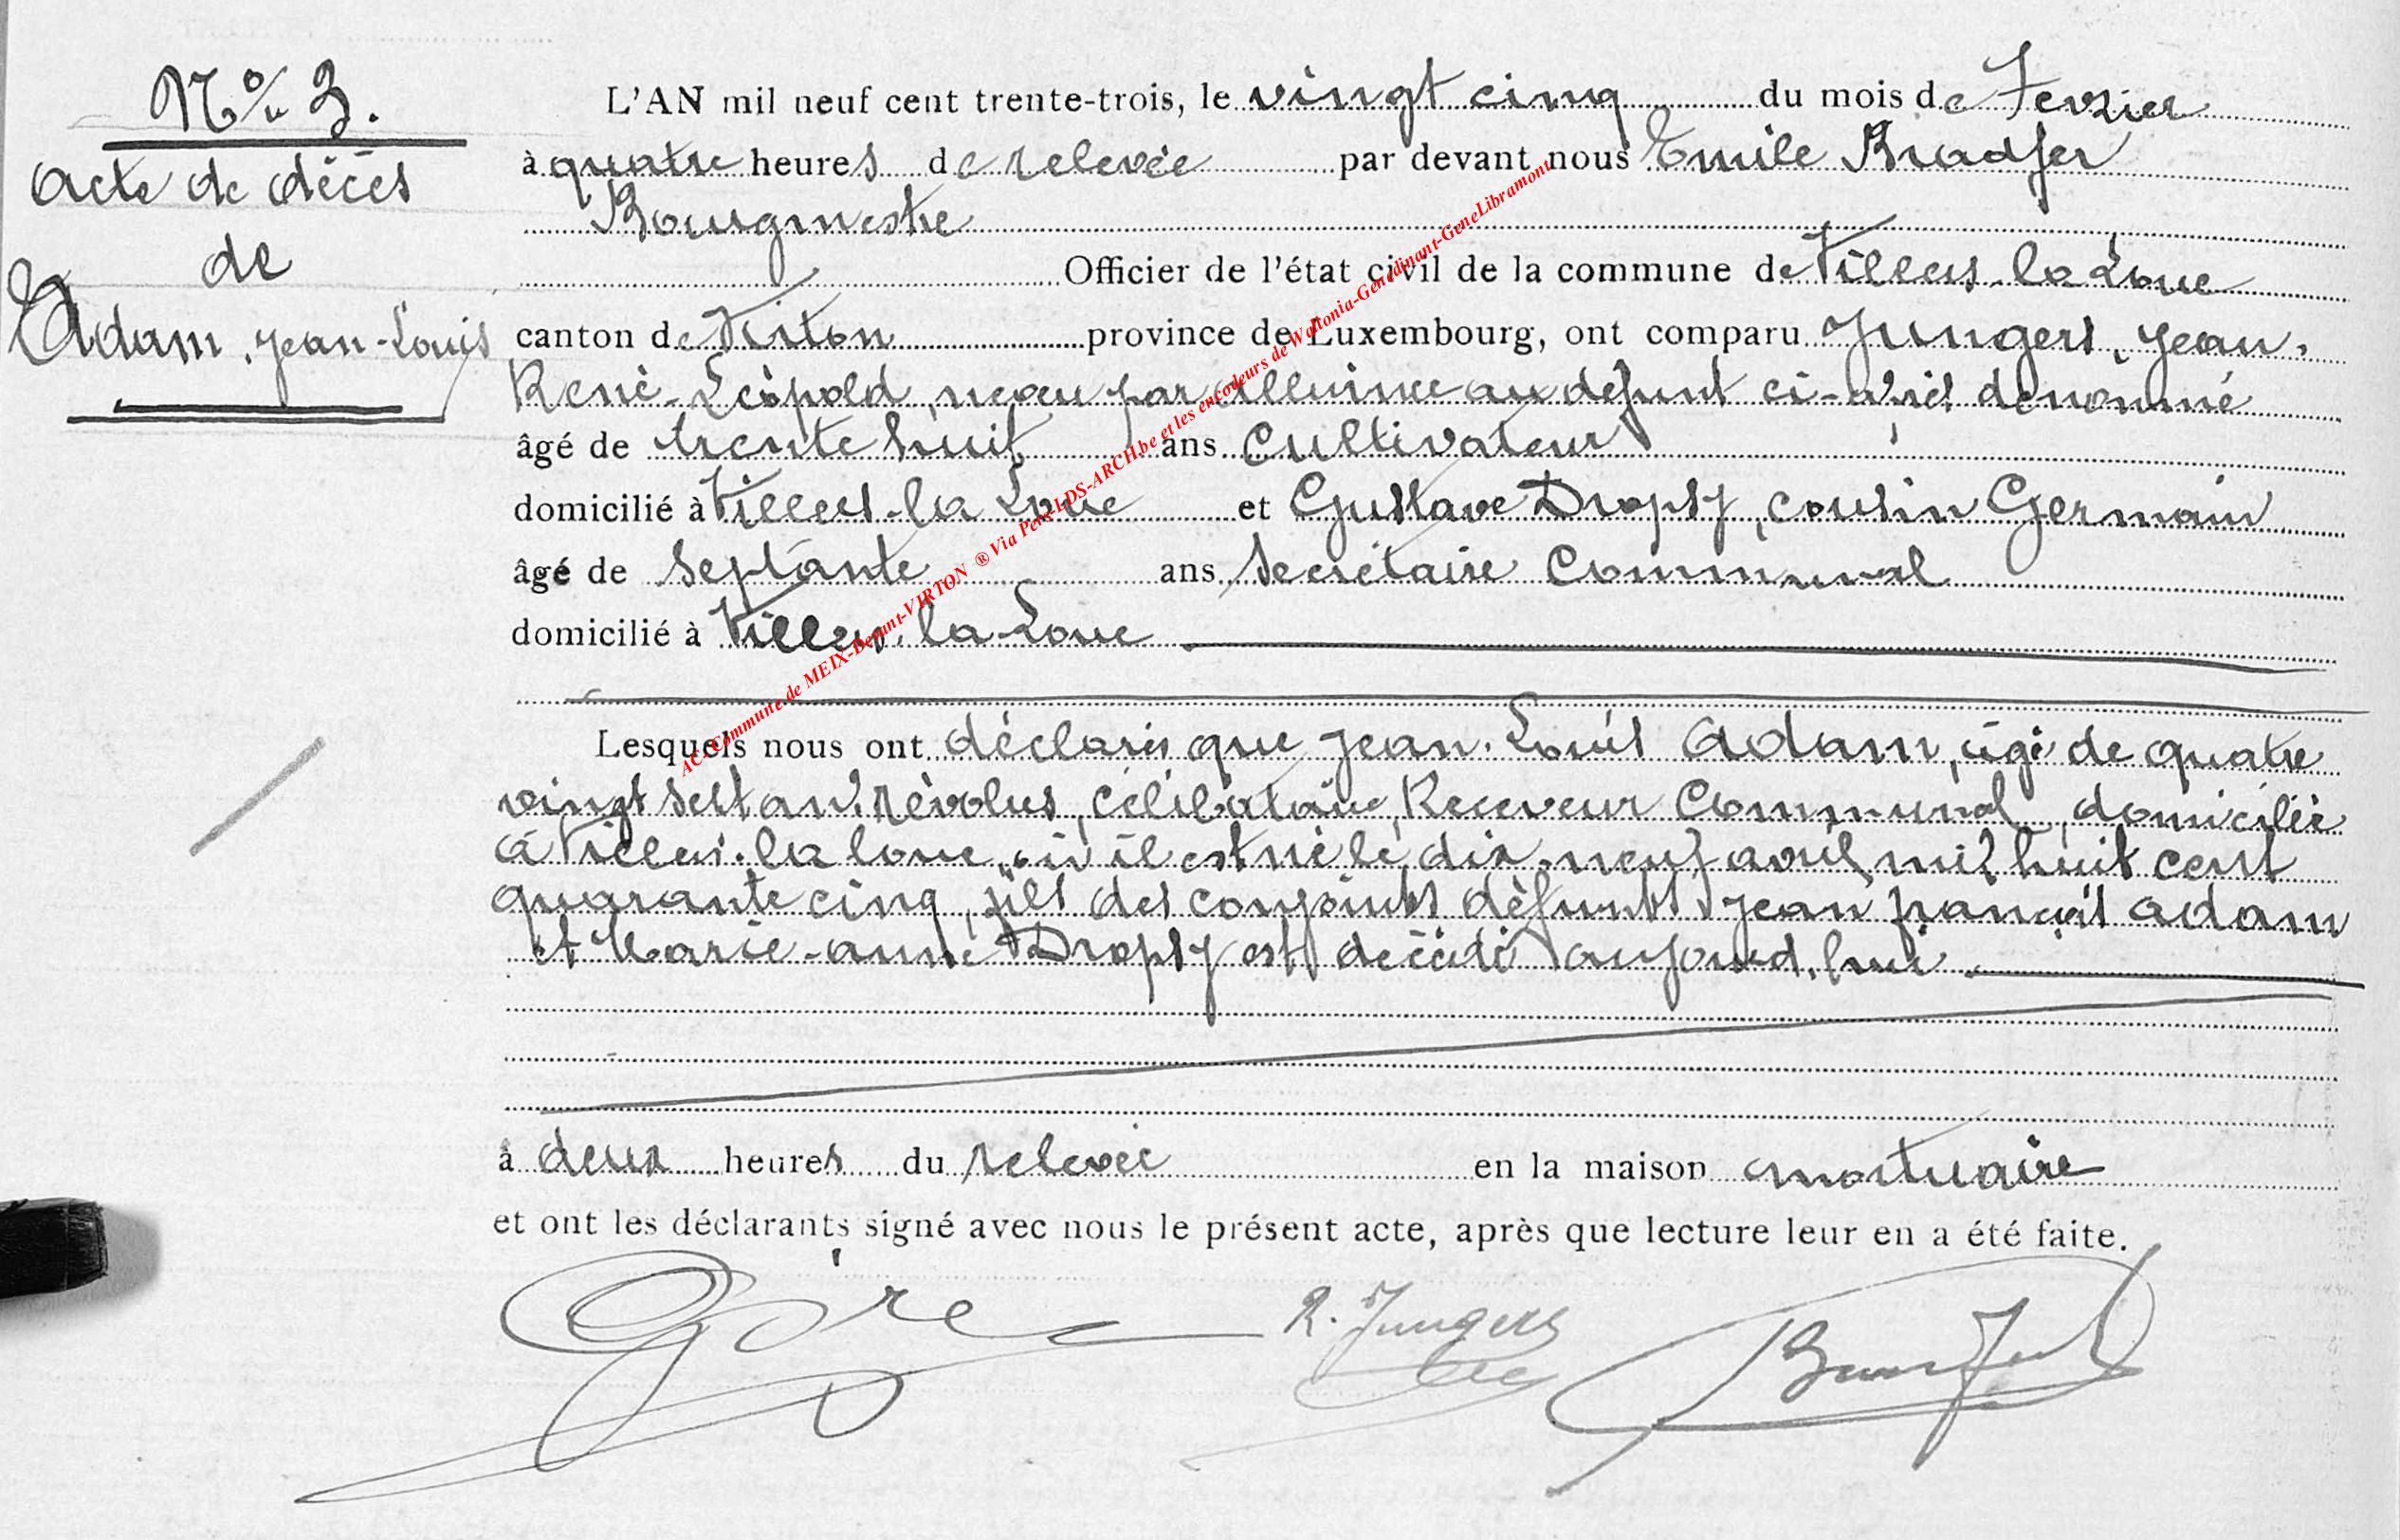 N° 3.
Acte de décès
de
Adam, Jean-Louis
L'AN mil neuf cent trente-trois, le vingt cinq du mois de Fevrier
à quatre heures de relevée par devant nous Emile Bradfer
Bougmestre
Officier de l'état civil de la commune de Villers-la-Loue
canton de Virton province de Luxembourg, ont comparu Jungers, Jean-
René-Léopold, neveu par alliance au défunt ci-après dénommé
âgé de trente huit ans cultivateur
domicilié à Villers-la Loue et Gustave Dropsy, cousin Germain
âgé de septante ans, Secrétaire Communal
domicilié à Villers-la-Loue
Lesquels nous ont déclaré que Jean-Louis Adam, âgé de quatre
vingt sept ans révolus, célibataire, Receveur Communal, domicilié
à Villers-la loue, où il est né le dix-neuf avril mil huit cent
quarante cinq, fils des conjoints défunts Jean françois Adam
et Marie-anne Dropsy est décédé aujourd'hui
à deux heures du relevée en la maison mortuaire
et ont les déclarants signé avec nous le présent acte, après que lecture leur en a été faite.
R. Jungers
AC-Commune de MEIX-Devant-VIRTON ® Via Pers-LDS-ARCH.be et les encodeurs de Wallonia-Genedinant-GeneLibramont